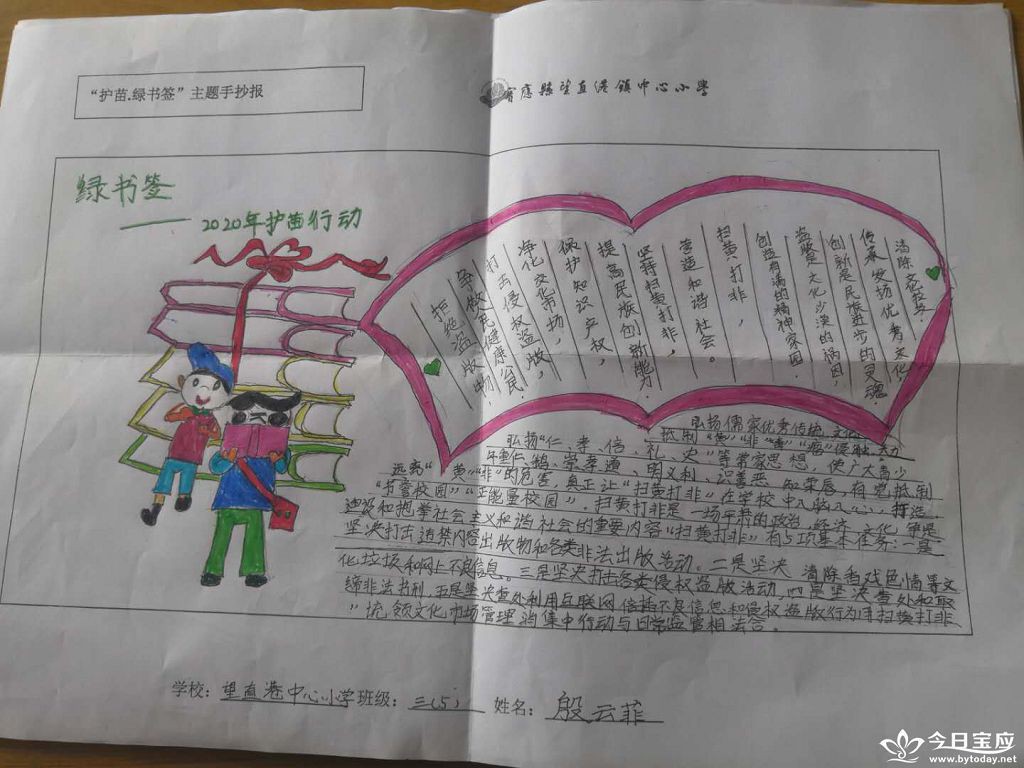 “护苗.绿书签”主题手抄报
宝应县望直港镇中心小学
绿书签
——2020年护苗行动
清除文化垃圾,
传承发扬优秀文化
创新是民族进步的灵魂.
盗版是文化沙漠的祸因,
创造有满的精神家园
扫黄打非,
营造和谐社会。
坚持扫黄打非,
提高民族创新能力.
保护知识产权,
净化文化市场,
打击侵权盗版,
争做健康
拒绝盗版物
弘扬儒家优秀传统文化
弘扬“仁、孝、信、礼、史”等常家思想,使广大青少
崇孝道、明义利、知荣辱,有
远离“黄”“非”的危害,真正让“扫黄打非”在学校中
“书香校园”“正能量校园”.扫黄打非是一场牛特的政治、经济、文化
建设和把举社会主义和谐社会的重要内容“扫黄打非”有5项基本任务:一是
坚决打击违禁内容出版物和各类非法出版活动。二是坚决清除香戏色情等文
化垃圾和网上不良信息。三是坚决打击各类侵权盗版活动,四是坚决查处和取
缔非法书刊,五是坚决查处利用互联网信
统领文化市场管理当集中行动与日常监管相法合。
学校:望直港中心小学班级:三(5) 姓名:殷云菲
今日宝应
www.bytoday.net